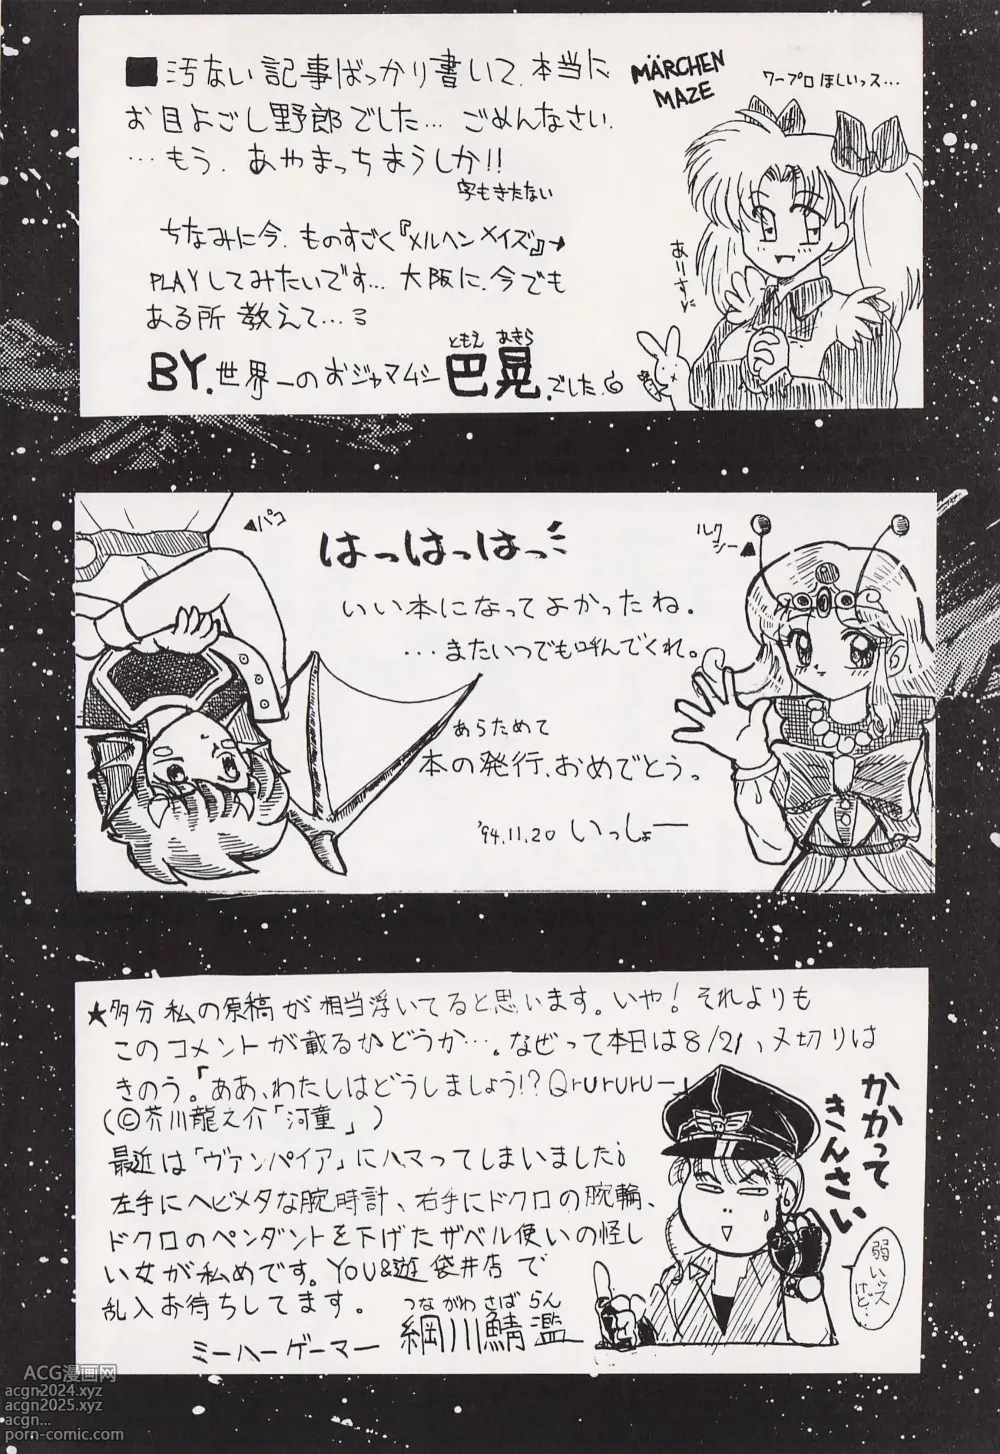 ■汚ない記事ばっかり書いて、本当に
お目よごし野郎でした… ごめんなさい.
…もう、あやまっちまうしか!!
字もきたない
MÄRCHEN
MAZE
ワープロほしいっス…
ちなみに今、ものすごく『メルヘンメイズ』
PLAYしてみたいです… 大阪に、今でも
ある所 教えて…
ともえ あきら
BY.世界一のおジャマムシ 巴晃.でした.
▲パコ
はっはっはっ
ルクシー▲
いい本になってよかったね。
…またいつでも呼んでくれ。
あらためて
本の発行、おめでとうっ
'94.11.20 いっしょー
★多分私の原稿が相当浮いてると思います。いや!それよりも
このコメントが載るかどうか…。なぜって本日は8/21、〆切りは
きのう。「ああ、わたしはどうしましょう!?Qrurururu—」
(©芥川龍之介「河童」)
最近は「ヴァンパイア」にハマってしまいました
左手にヘビメタな腕時計、右手にドクロの腕輪、
ドクロのペンダントを下げたザベル使いの怪し
い女が私めです。YOU&遊 袋井店で
乱入お待ちしてます。
つながわ さば らん
ミーハーゲーマー 綱川鯖濫
かかって
きんさい
弱いっス
けど…
ACG漫画网
acgn2024.xyz
acgn2025.xyz
acgn...
porn-comic.com